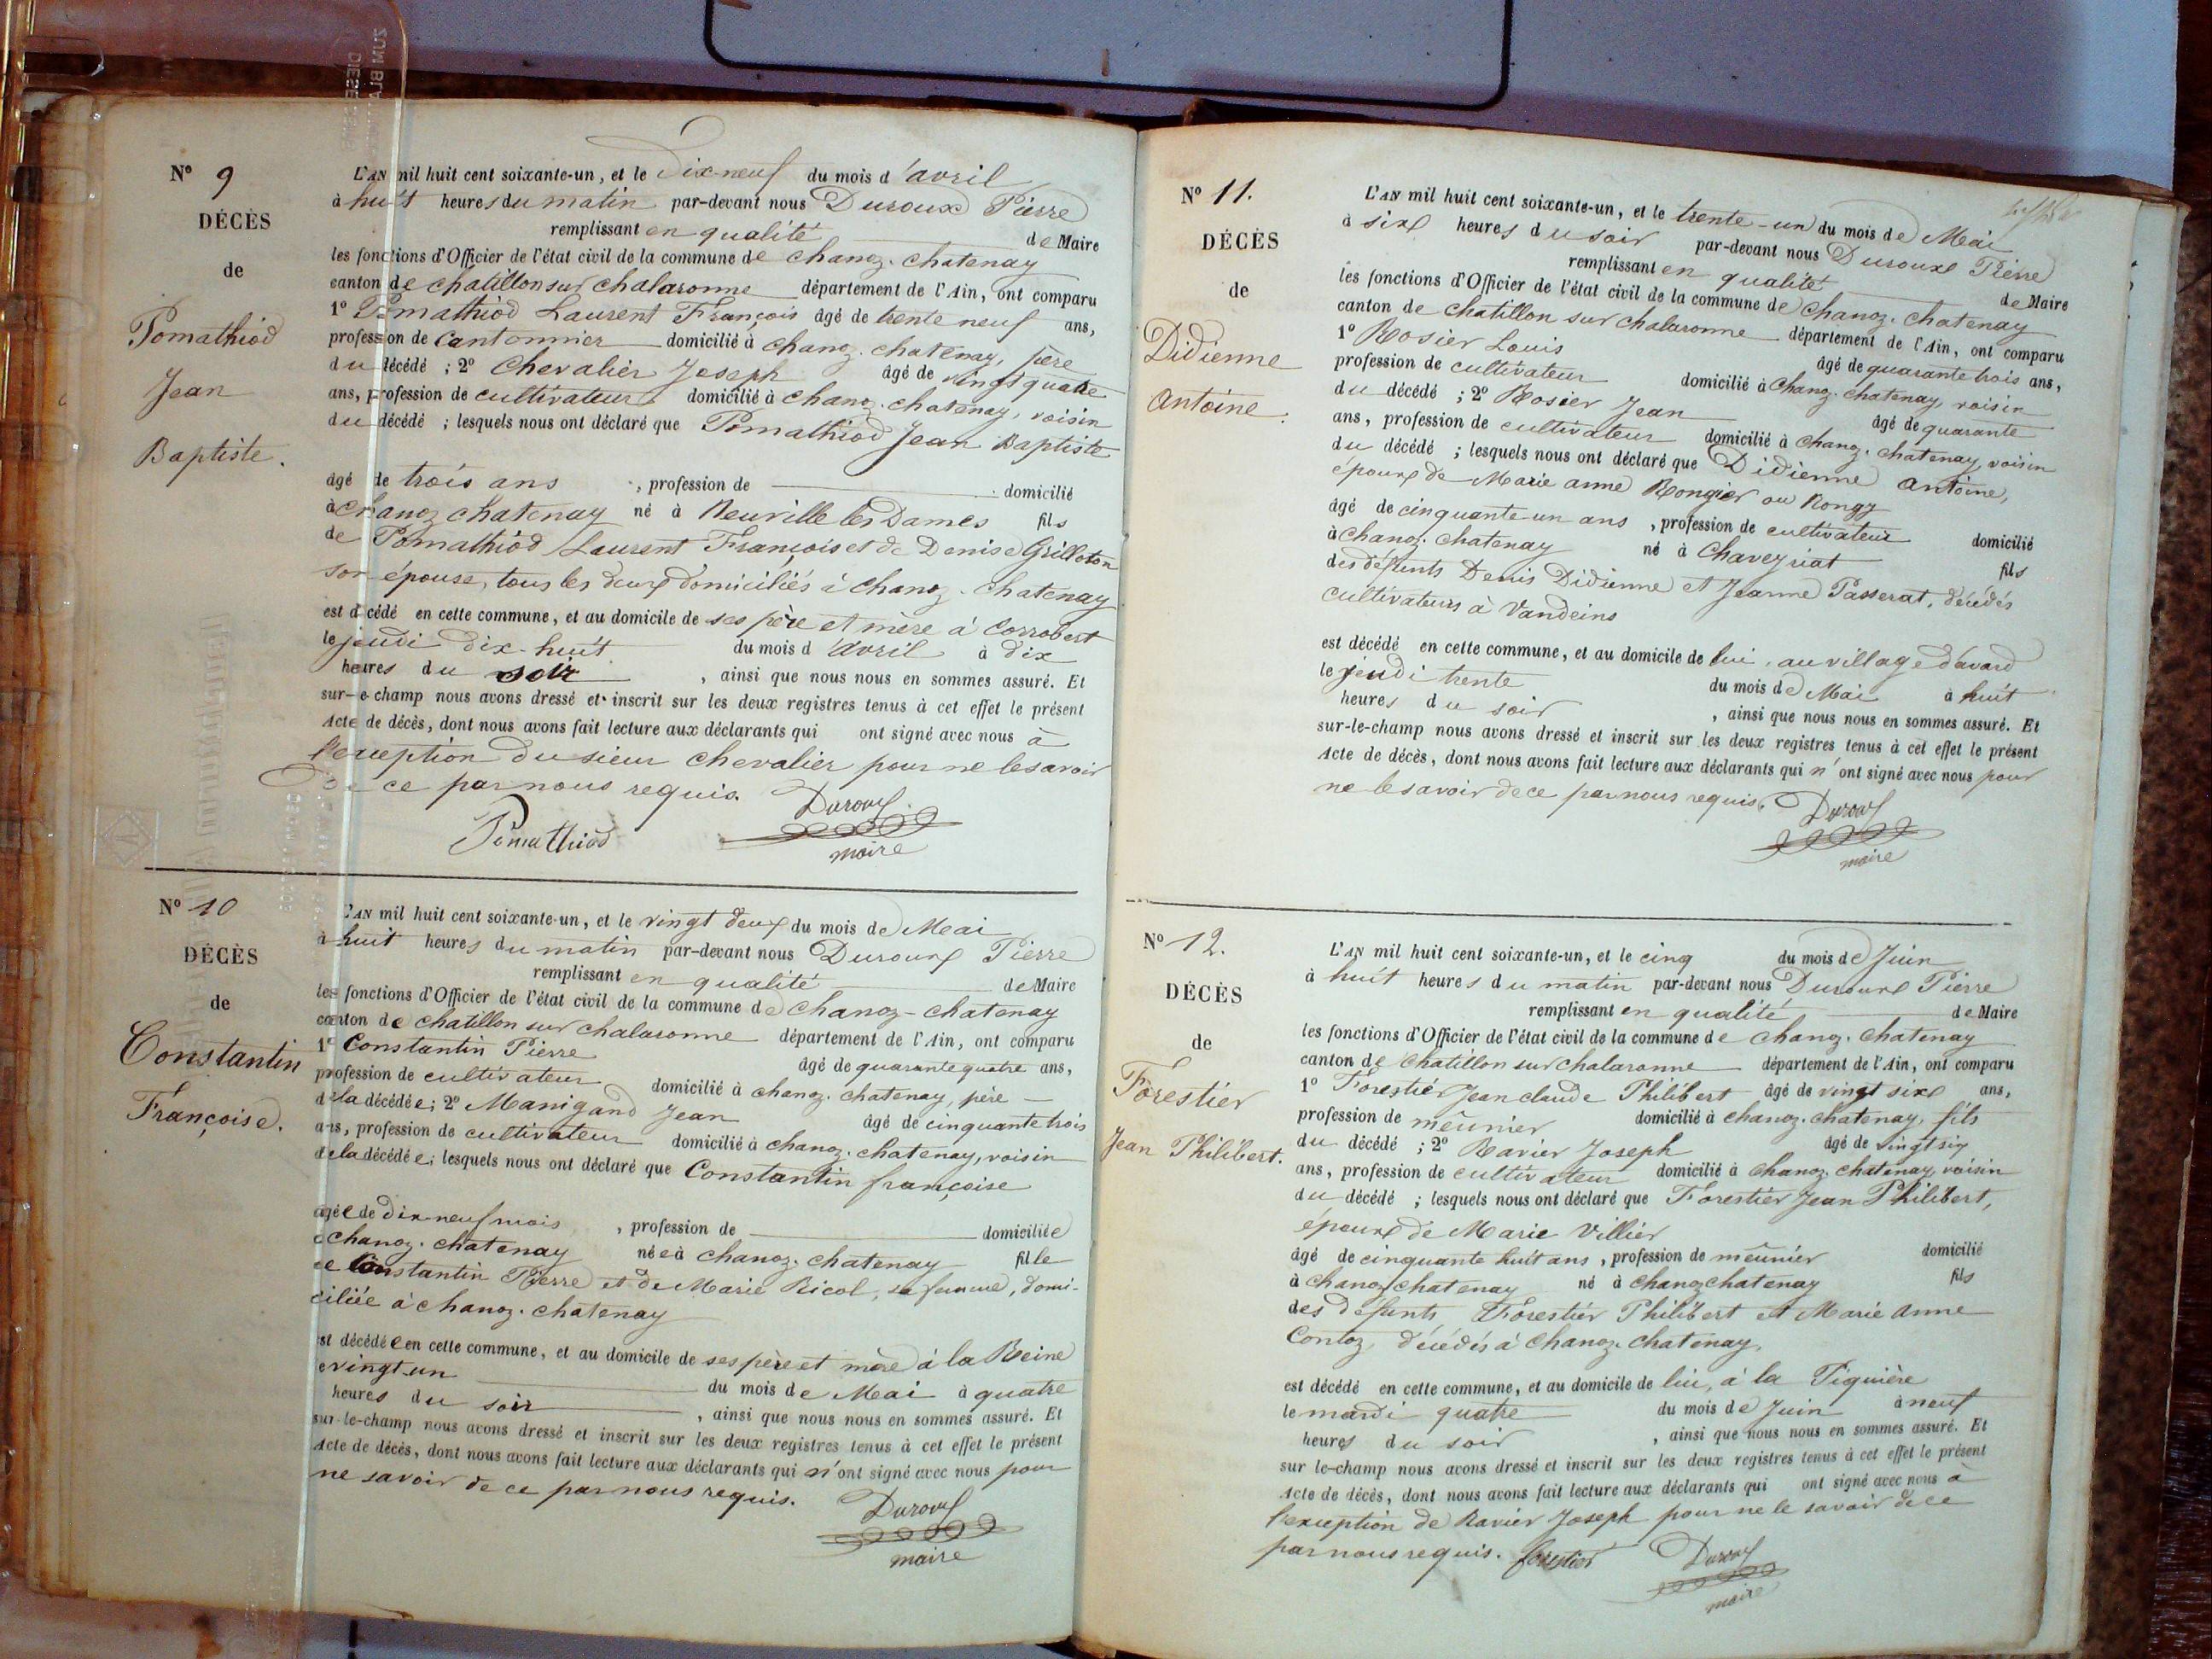 N° 9
DÉCÈS
de
Pomathiod
Jean
Baptiste.
L'AN mil huit cent soixante-un, et le Dix-neuf du mois d'avril
à huit heures du matin par-devant nous Duroux Pierre
remplissant en qualité de Maire
les fonctions d'Officier de l'état civil de la commune de Chanoz-Chatenay
canton de Chatillon sur Chalaronne département de l'Ain, ont comparu
1° Pomathiod Laurent François âgé de trente neuf ans,
profession de Cantonnier domicilié à Chanoz-Chatenay, père
du décédé ; 2° Chevalier Joseph âgé de vingt quatre
ans, profession de cultivateur domicilié à Chanoz-Chatenay, voisin
du décédé ; lesquels nous ont déclaré que Pomathiod Jean Baptiste
âgé de trois ans , profession de domicilié
à Chanoz Chatenay né à Neuville les Dames fils
de Pomathiod Laurent François et de Denise Grilleton
son épouse, tous les deux domiciliés à Chanoz-Chatenay
est décédé en cette commune, et au domicile de ses père et mère à Corrobert
le jeudi dix-huit du mois d'avril à dix
heures du soir , ainsi que nous nous en sommes assuré. Et
sur-le-champ nous avons dressé et inscrit sur les deux registres tenus à cet effet le présent
Acte de décès, dont nous avons fait lecture aux déclarants qui ont signé avec nous à
l'exception du sieur Chevalier pour ne le savoir
De ce par nous requis.
Pomathiod Duroux
maire
N° 10
DÉCÈS
de
Constantin
Françoise.
L'AN mil huit cent soixante-un, et le vingt deux du mois de Mai
à huit heures du matin par-devant nous Duroux Pierre
remplissant en qualité de Maire
les fonctions d'Officier de l'état civil de la commune de Chanoz-Chatenay
canton de Chatillon sur Chalaronne département de l'Ain, ont comparu
1° Constantin Pierre âgé de quarante quatre ans,
profession de cultivateur domicilié à Chanoz-Chatenay, père
de la décédée ; 2° Manigand Jean âgé de cinquante trois
ans, profession de cultivateur domicilié à Chanoz-Chatenay, voisin
de la décédée ; lesquels nous ont déclaré que Constantin françoise
âgée de dix-neuf mois , profession de domiciliée
à Chanoz-Chatenay née à Chanoz-Chatenay fille
de Constantin Pierre et de Marie Ricol, sa femme, domi-
ciliée à Chanoz-Chatenay
est décédée en cette commune, et au domicile de ses père et mère à la Reine
le vingt-un du mois de Mai à quatre
heures du soir , ainsi que nous nous en sommes assuré. Et
sur-le-champ nous avons dressé et inscrit sur les deux registres tenus à cet effet le présent
Acte de décès, dont nous avons fait lecture aux déclarants qui n'ont signé avec nous pour
ne savoir de ce par nous requis.
Duroux
maire
N° 11.
DÉCÈS
de
Didienne
Antoine.
L'AN mil huit cent soixante-un, et le trente-un du mois de Mai
à six heures du soir par-devant nous Duroux Pierre
remplissant en qualité de Maire
les fonctions d'Officier de l'état civil de la commune de Chanoz-Chatenay
canton de Chatillon sur Chalaronne département de l'Ain, ont comparu
1° Rosier Louis âgé de quarante trois ans,
profession de cultivateur domicilié à Chanoz-Chatenay, voisin
du décédé ; 2° Rosier Jean âgé de quarante
ans, profession de cultivateur domicilié à Chanoz-Chatenay, voisin
du décédé ; lesquels nous ont déclaré que Didienne Antoine,
époux de Marie anne Rongier ou Rongy
âgé de cinquante-un ans , profession de cultivateur domicilié
à Chanoz-Chatenay né à Chaveyriat fils
des défunts Denis Didienne et Jeanne Passerat, décédés
cultivateurs à Vandeins
est décédé en cette commune, et au domicile de lui, au village d'avard
le jeudi trente du mois de Mai à huit
heures du soir , ainsi que nous nous en sommes assuré. Et
sur-le-champ nous avons dressé et inscrit sur les deux registres tenus à cet effet le présent
Acte de décès, dont nous avons fait lecture aux déclarants qui n'ont signé avec nous pour
ne le savoir de ce par nous requis.
Duroux
maire
N° 12.
DÉCÈS
de
Forestier
Jean Philibert.
L'AN mil huit cent soixante-un, et le cinq du mois de Juin
à huit heures du matin par-devant nous Duroux Pierre
remplissant en qualité de Maire
les fonctions d'Officier de l'état civil de la commune de Chanoz-Chatenay
canton de Chatillon sur Chalaronne département de l'Ain, ont comparu
1° Forestier Jean claude Philibert âgé de vingt six ans,
profession de meûnier domicilié à Chanoz-Chatenay, fils
du décédé ; 2° Ravier Joseph âgé de vingt six
ans, profession de cultivateur domicilié à Chanoz-Chatenay, voisin
du décédé ; lesquels nous ont déclaré que Forestier Jean Philibert,
époux de Marie Villier
âgé de cinquante huit ans , profession de meûnier domicilié
à Chanoz Chatenay né à Chanoz Chatenay fils
des défunts Forestier Philibert et Marie Anne
Contoz, décédés à Chanoz-Chatenay,
est décédé en cette commune, et au domicile de lui, à la Tiguière
le mardi quatre du mois de Juin à neuf
heures du soir , ainsi que nous nous en sommes assuré. Et
sur le-champ nous avons dressé et inscrit sur les deux registres tenus à cet effet le présent
Acte de décès, dont nous avons fait lecture aux déclarants qui ont signé avec nous à
l'exception de Ravier Joseph pour ne le savoir de ce
par nous requis. forestier Duroux
maire